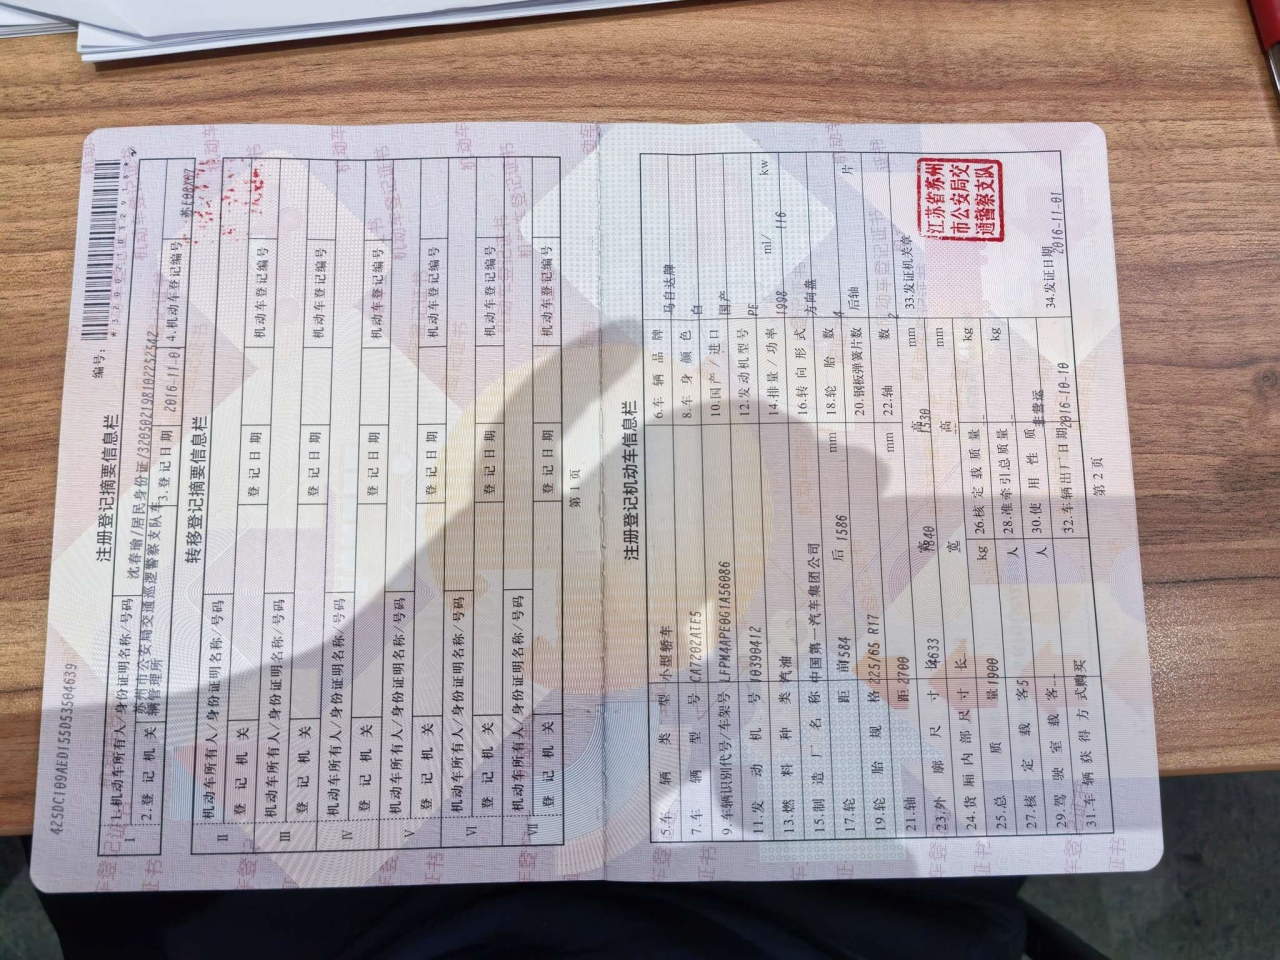 425DC109AED155D53504639
注册登记摘要信息栏
编号：
Ⅰ 1.机动车所有人/身份证明名称/号码 沈春瑜/居民身份证/320502198102252542
2.登记机关 苏州市公安局交通巡逻警察支队车辆管理所 3.登记日期 2016-11-01 4.机动车登记编号
转移登记摘要信息栏
Ⅱ 机动车所有人/身份证明名称/号码
登记机关 登记日期 机动车登记编号
Ⅲ 机动车所有人/身份证明名称/号码
登记机关 登记日期 机动车登记编号
Ⅳ 机动车所有人/身份证明名称/号码
登记机关 登记日期 机动车登记编号
Ⅴ 机动车所有人/身份证明名称/号码
登记机关 登记日期 机动车登记编号
Ⅵ 机动车所有人/身份证明名称/号码
登记机关 登记日期 机动车登记编号
Ⅶ 机动车所有人/身份证明名称/号码
登记机关 登记日期 机动车登记编号
第 1 页
注册登记机动车信息栏
5.车辆类型 小型轿车 6.车辆品牌 马自达牌
7.车辆型号 CA7202ATE5 8.车身颜色 白
9.车辆识别代号/车架号 LFPM4APE0G1A56086 10.国产/进口 国产
11.发动机号 10390412 12.发动机型号 PE
13.燃料种类 汽油 14.排量/功率 1998 ml/ 116 kw
15.制造厂名称 中国第一汽车集团公司 16.转向形式 方向盘
17.轮距 前1584 后 1586 mm 18.轮胎数 4
19.轮胎规格 225/65 R17 20.钢板弹簧片数 后轴 片
21.轴距 2700 mm 22.轴数 2
23.外廓尺寸 长4633 宽1840 高1530 mm 33.发证机关章
24.货厢内部尺寸 长 宽 高 mm
25.总质量 1900 kg 26.核定载质量 -- kg
27.核定载客 5 人 28.准牵引总质量 -- kg
29.驾驶室载客 -- 人 30.使用性质 非营运
31.车辆获得方式 购买 32.车辆出厂日期 2016-10-10 34.发证日期 2016-11-01
江苏省苏州
市公安局交
通警察支队
第 2 页